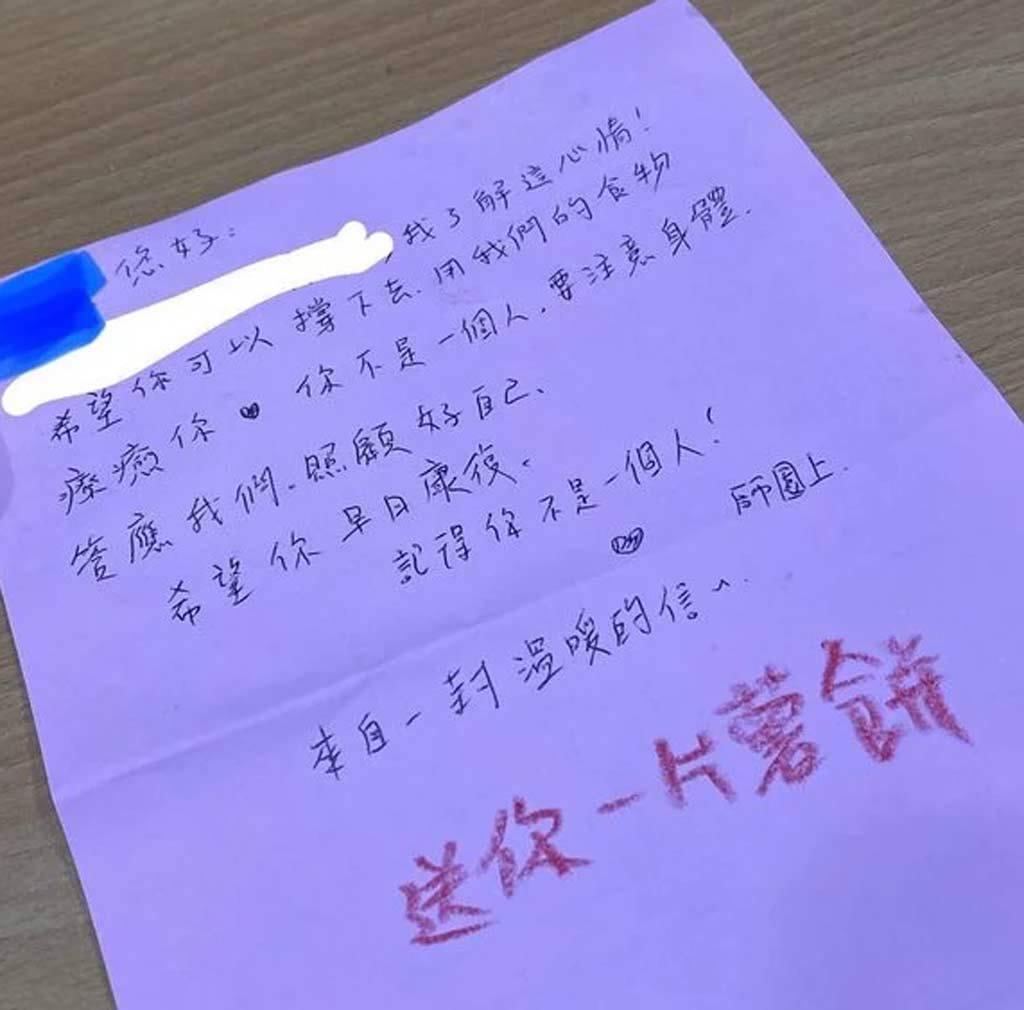 您好:
我了解這心情!
希望你可以撐下去.用我們的食物
療癒你♥ 你不是一個人.要注意身體.
答應我們.照顧好自己.
希望你早日康復.
記得你不是一個人!
♥ 師園上.
來自一封溫暖的信^^..
送你一片薯餅